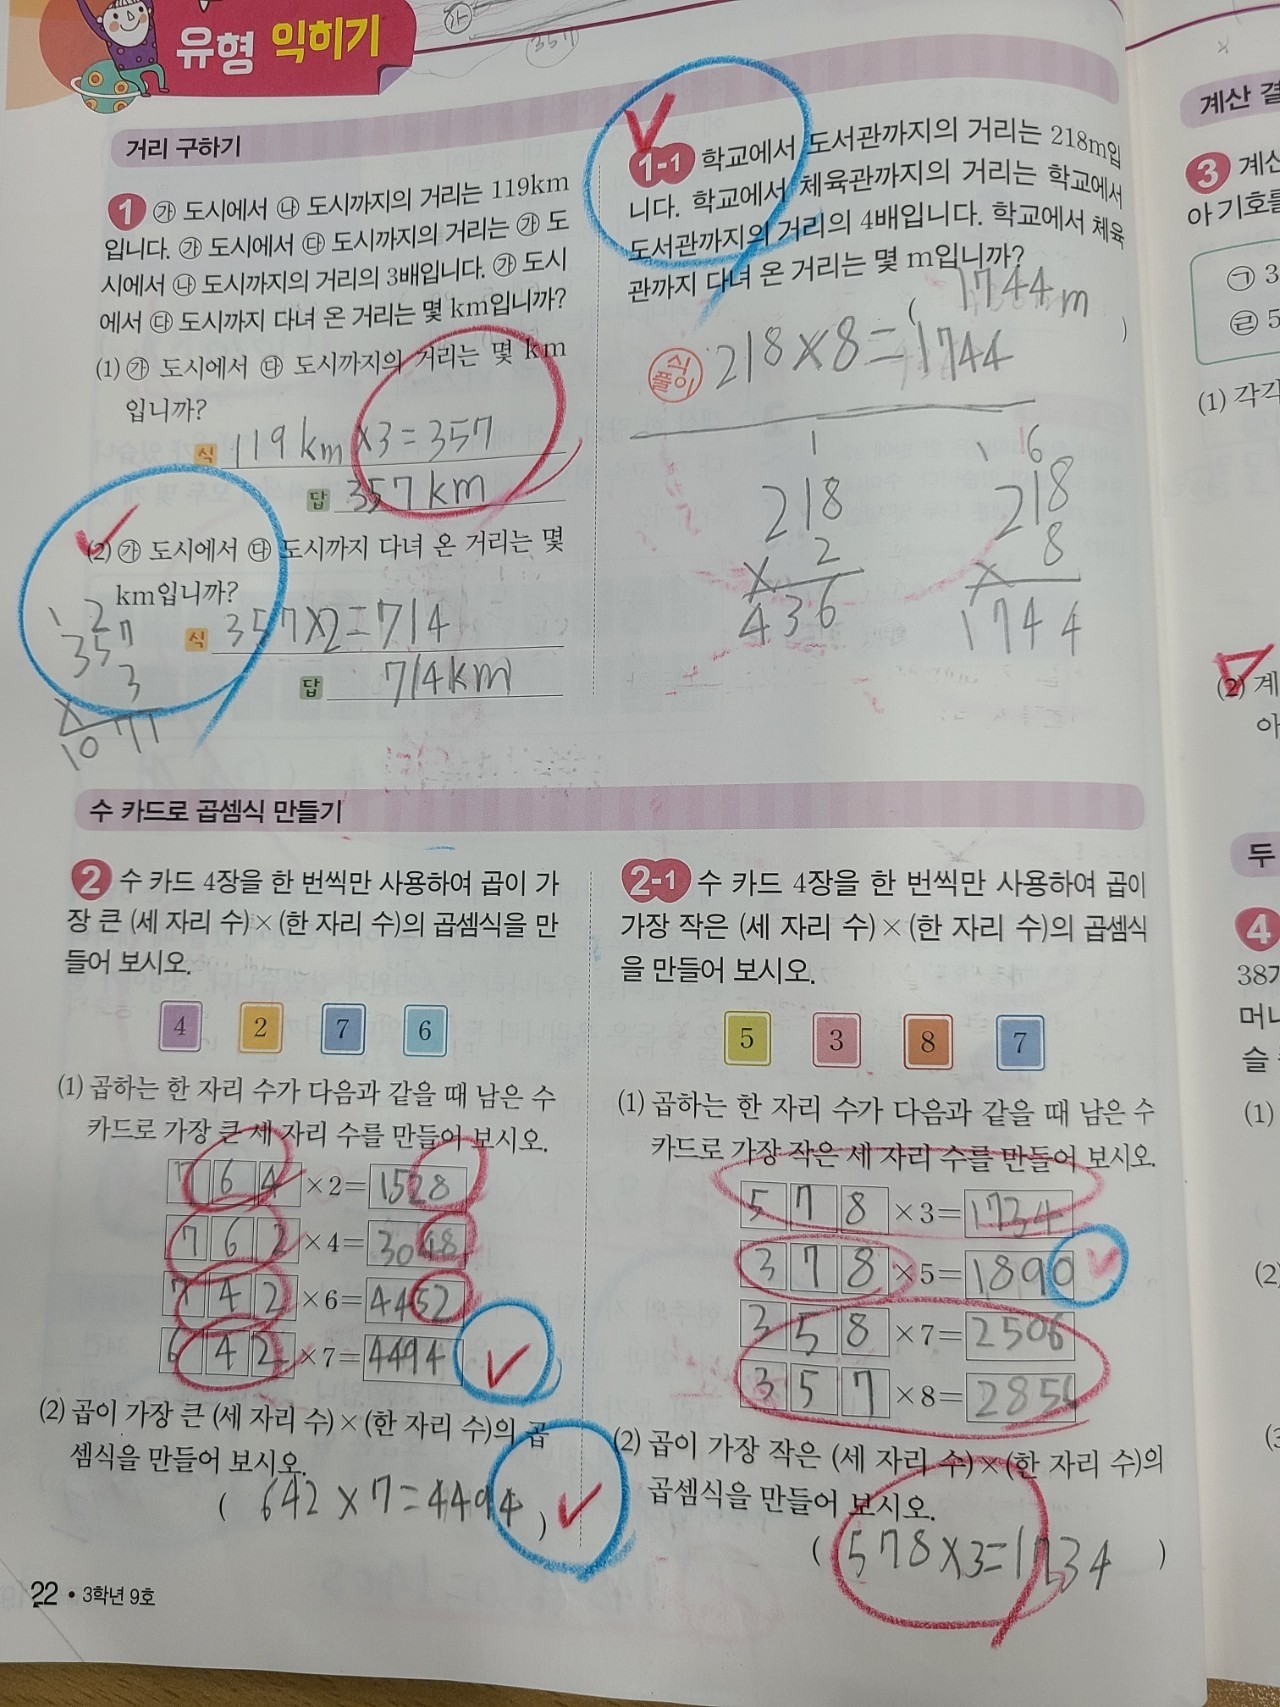 유형 익히기
㉮
357
거리 구하기
1 ㉮ 도시에서 ㉯ 도시까지의 거리는 119km
입니다. ㉮ 도시에서 ㉰ 도시까지의 거리는 ㉮ 도
시에서 ㉯ 도시까지의 거리의 3배입니다. ㉮ 도시
에서 ㉰ 도시까지 다녀 온 거리는 몇 km입니까?
(1) ㉮ 도시에서 ㉰ 도시까지의 거리는 몇 km
입니까?
식 119km×3=357
답 357km
(2) ㉮ 도시에서 ㉰ 도시까지 다녀 온 거리는 몇
km입니까?
식 357×2=714
답 714km
1 2
357
3
×
1071
1-1 학교에서 도서관까지의 거리는 218m입
니다. 학교에서 체육관까지의 거리는 학교에서
도서관까지의 거리의 4배입니다. 학교에서 체육
관까지 다녀 온 거리는 몇 m입니까?
( 1744m )
식 풀이 218×8=1744
1
218
× 2
436
1 6
218
× 8
1744
수 카드로 곱셈식 만들기
2 수 카드 4장을 한 번씩만 사용하여 곱이 가
장 큰 (세 자리 수)×(한 자리 수)의 곱셈식을 만
들어 보시오.
4 2 7 6
(1) 곱하는 한 자리 수가 다음과 같을 때 남은 수
카드로 가장 큰 세 자리 수를 만들어 보시오.
7 6 4 ×2= 1528
7 6 2 ×4= 3048
7 4 2 ×6= 4452
6 4 2 ×7= 4494
(2) 곱이 가장 큰 (세 자리 수)×(한 자리 수)의 곱
셈식을 만들어 보시오.
( 642×7=4494 )
2-1 수 카드 4장을 한 번씩만 사용하여 곱이
가장 작은 (세 자리 수)×(한 자리 수)의 곱셈식
을 만들어 보시오.
5 3 8 7
(1) 곱하는 한 자리 수가 다음과 같을 때 남은 수
카드로 가장 작은 세 자리 수를 만들어 보시오.
5 7 8 ×3= 1734
3 7 8 ×5= 1890
3 5 8 ×7= 2506
3 5 7 ×8= 2856
(2) 곱이 가장 작은 (세 자리 수)×(한 자리 수)의
곱셈식을 만들어 보시오.
( 578×3=1734 )
22 • 3학년 9호
계산 결
3 계산
아 기호를
㉠ 3
㉣ 5
(1) 각각
(2) 계
아
두
4
38개
머니
슬
(1)
(2)
(3)